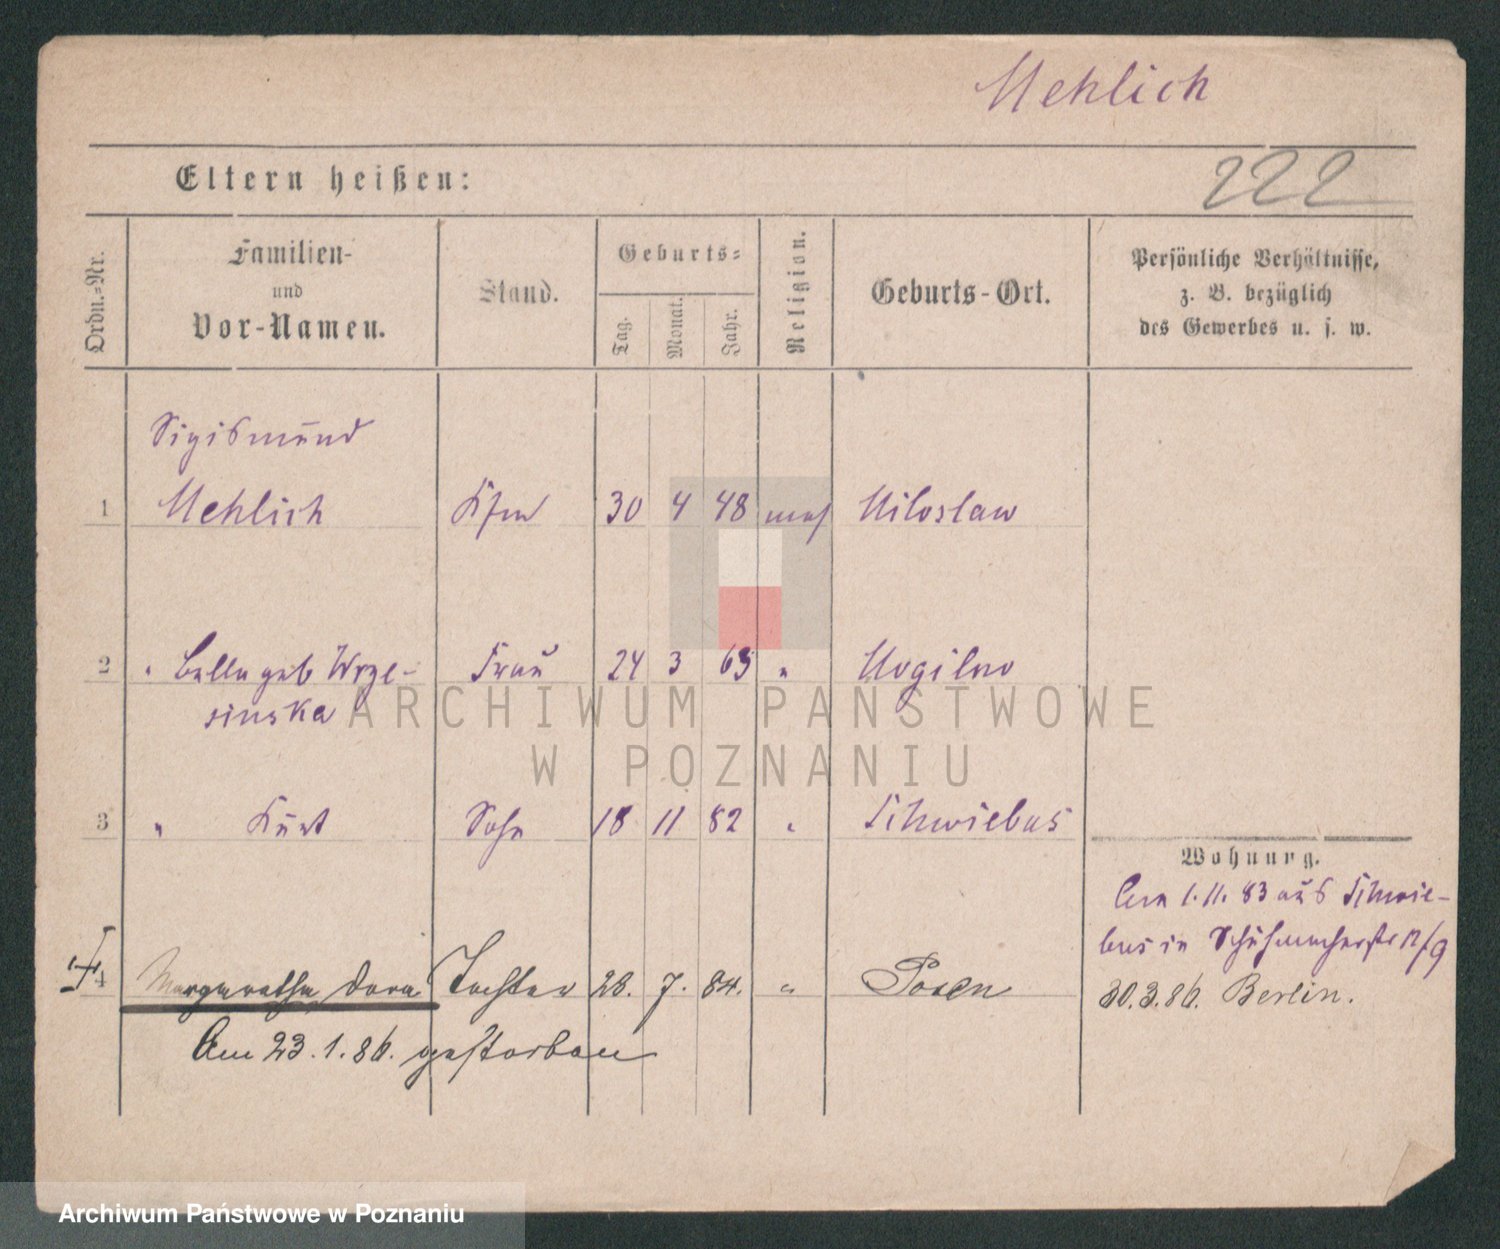 Mehlich
222
Eltern heißen:
Ordn.-Nr.
Familien-
und
Vor-Namen.
Stand.
Geburts-
Tag.
Monat.
Jahr.
Religion.
Geburts-Ort.
Persönliche Verhältnisse,
z. B. bezüglich
des Gewerbes u. s. w.
Sigismund
1 Mehlich Kfm 30 4 48 mos Miloslaw
2 " Bella geb Wrze- Frau 24 3 63 " Mogilno
sinska
3 " Kurt Sohn 18 11 82 " Schwiebus
Wohnung.
Am 1.11.83 aus Schwie-
bus in Schuhmacherstr 12/9
4 Margarethe Dora Tochter 28. 7. 84. " Posen
30.3.86. Berlin.
Am 23.1.86. gestorben
ARCHIWUM PAŃSTWOWE
W POZNANIU
Archiwum Państwowe w Poznaniu